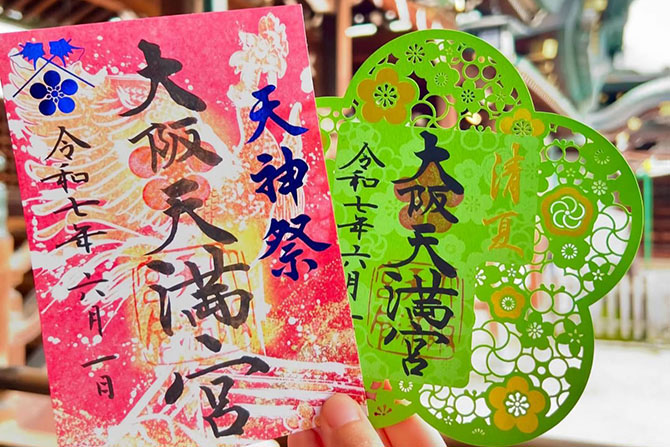 天神祭
大阪天満宮
令和七年六月一日
清夏
大阪天満宮
令和七年六月一